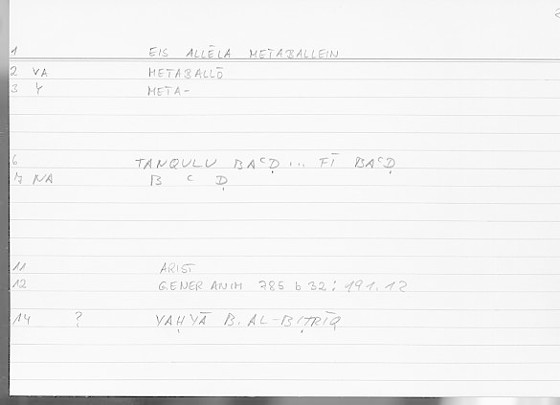 1 EIS ALLĒLA METABALLEIN
2 VA METABALLŌ
3 Y META-
6 TANQULU BAᶜḌ ... FĪ BAᶜḌ
7 NA B ᶜ Ḍ
11 ARIST
12 GENER ANIM 785 b 32; 191.12
14 ? YAḤYĀ B. AL-BIṬRĪQ